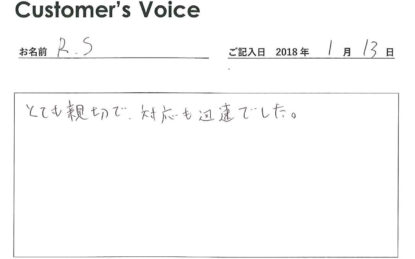 Customer's Voice
お名前 R.S ご記入日 2018年 1月 13日
とても親切で、対応も迅速でした。